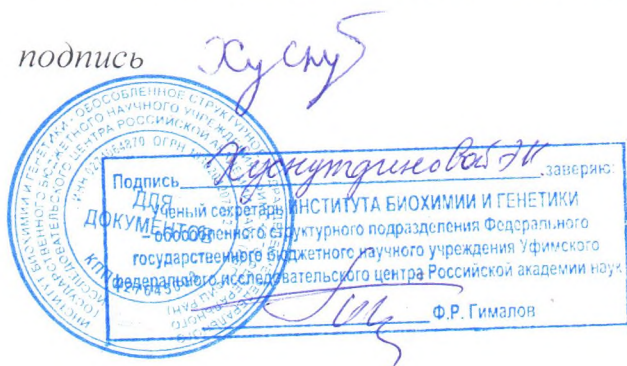 подпись Хусну
Подпись Хуснутдиновой ЭК заверяю:
Ученый секретарь ИНСТИТУТА БИОХИМИИ И ГЕНЕТИКИ
– обособленного структурного подразделения Федерального
государственного бюджетного научного учреждения Уфимского
федерального исследовательского центра Российской академии наук
Ф.Р. Гималов
ДЛЯ
ДОКУМЕНТОВ